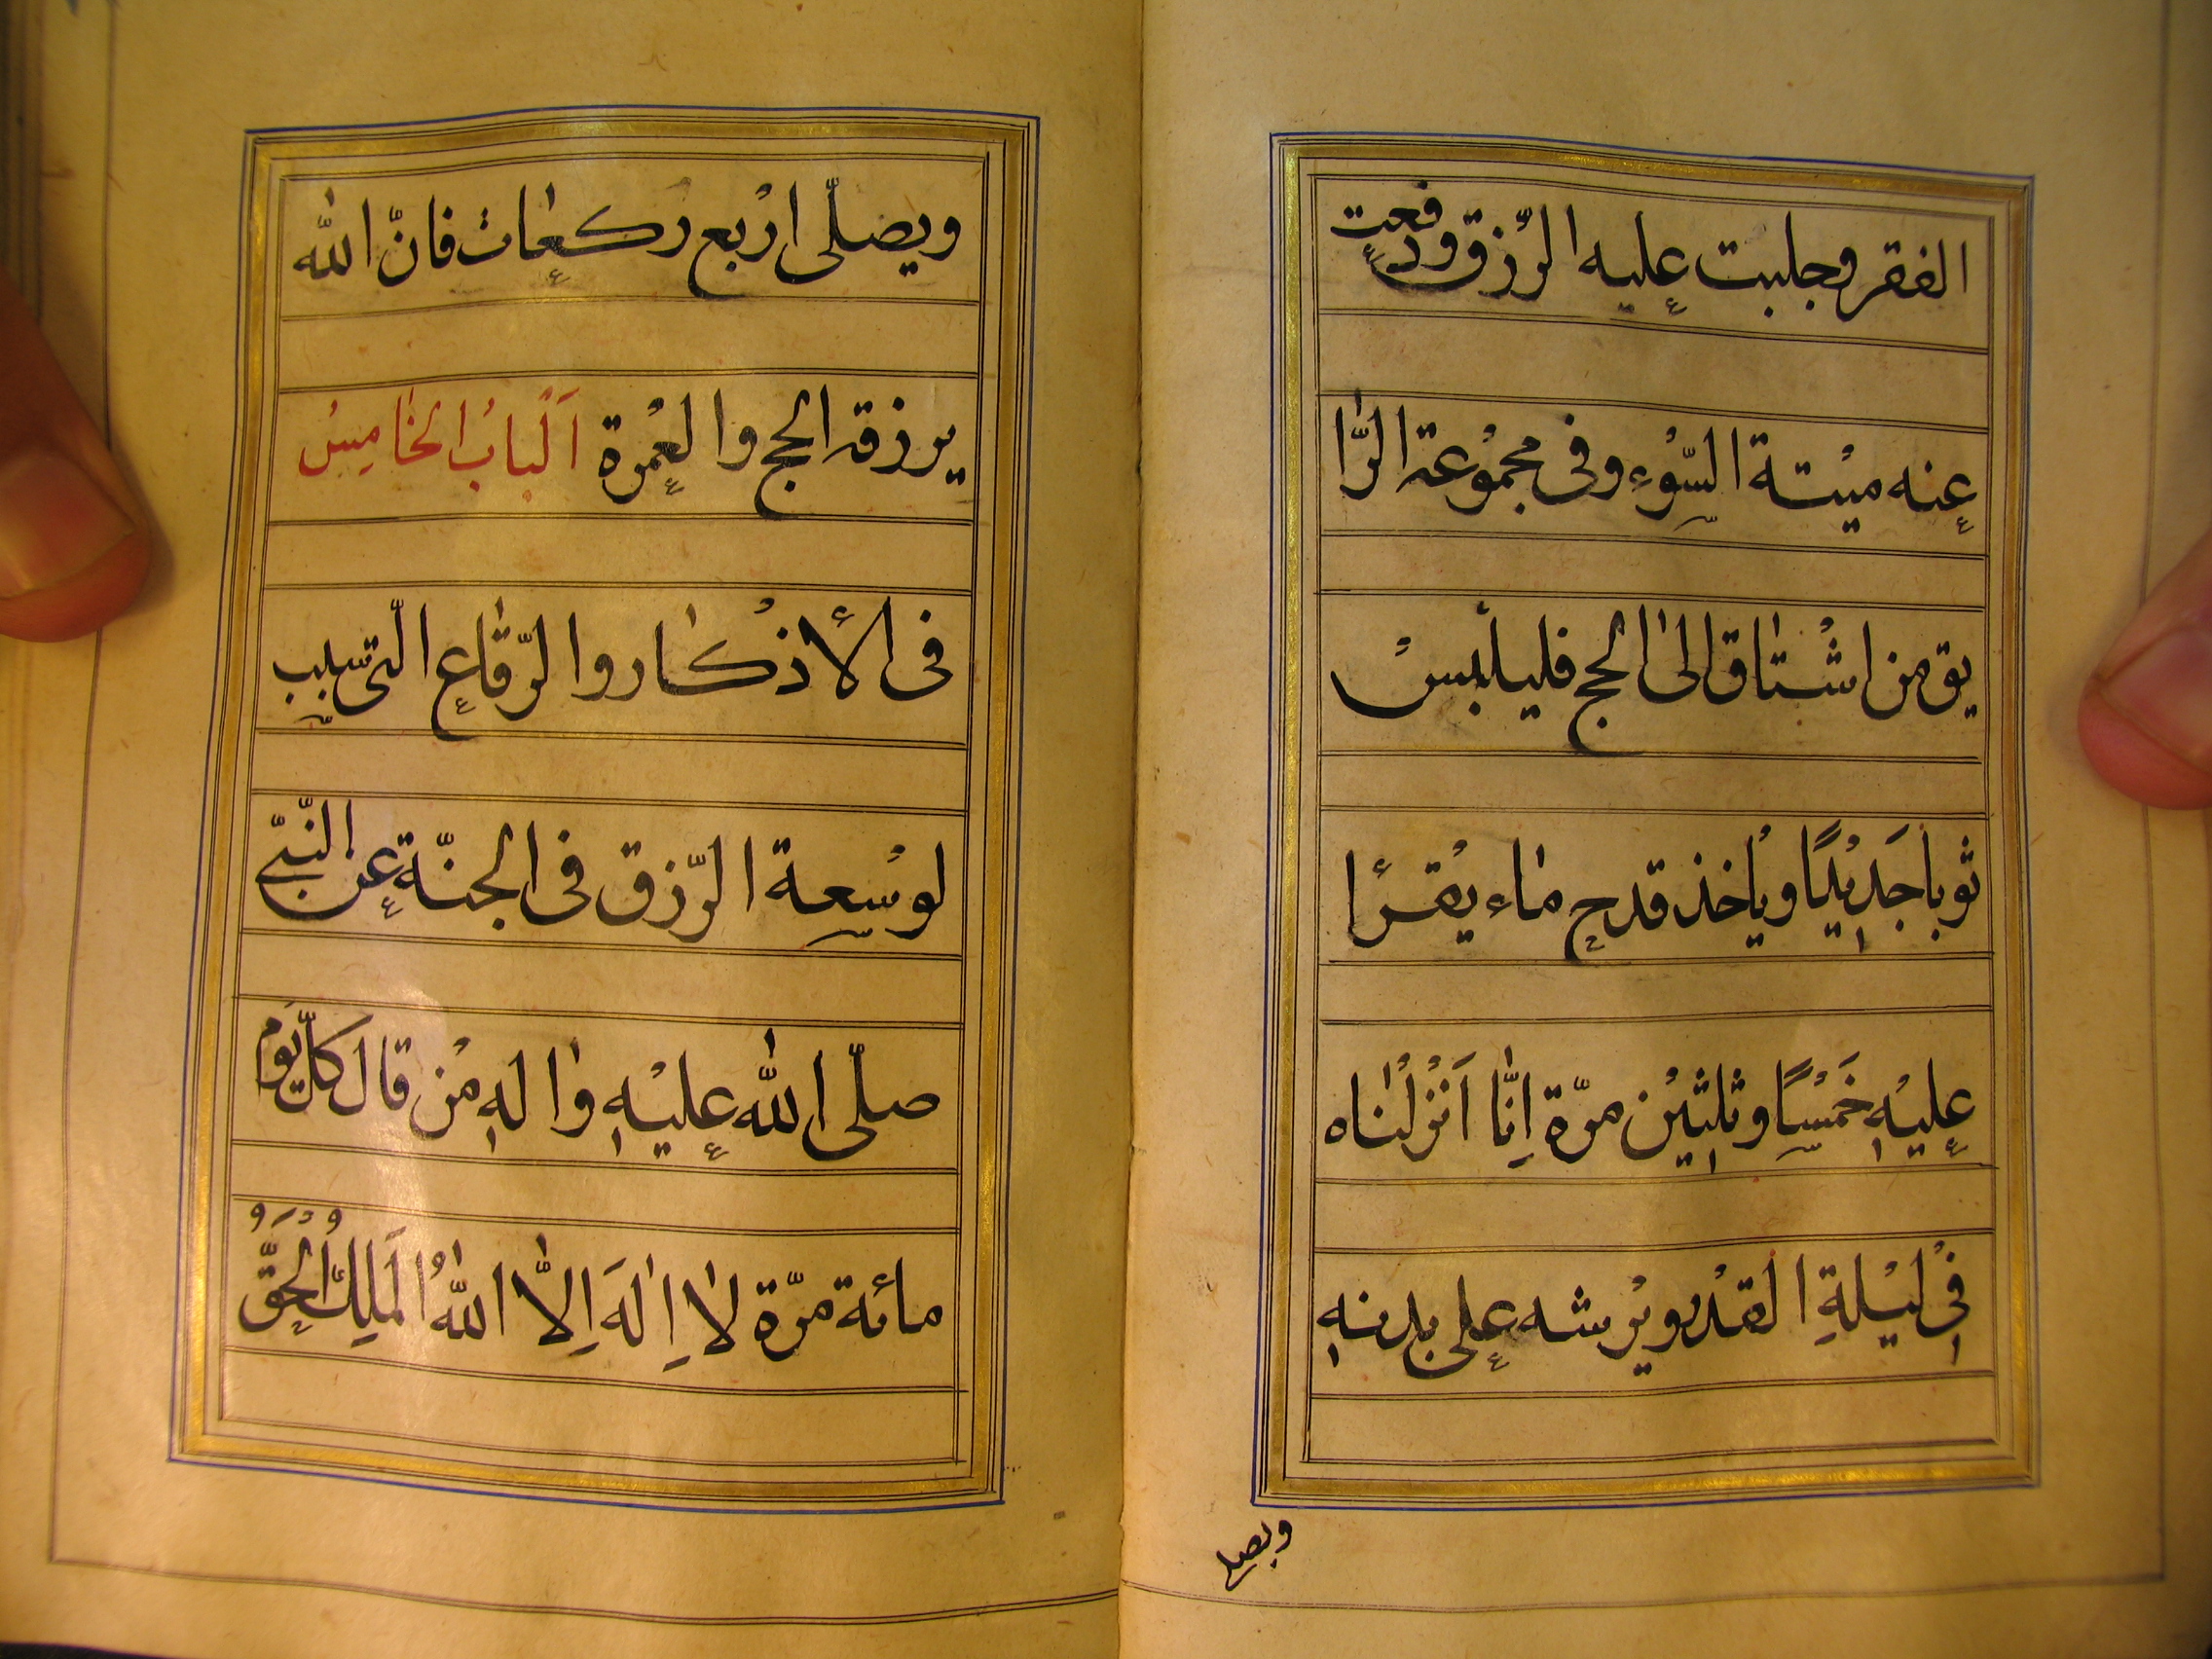 الفقر وجلبت عليه الرّزق ودفعت
عنه ميْتة السّوْء وفى مجموْعة الرّا
يق من اشْتاق الى الحج فليلْبسْ
ثوبا جَديْدًا وياْخذ قدح ماء يقْرأ
عليْهِ خَمْسًا وثلثيْن مرّة اِنّا اَنْزلْناه
فىْ ليْلةِ القدْر ويْرشه على بدنهِ
ويصلى
ويصلّى ارْبع ركعات فانّ الله
يرزقه الحج والعمْرة اَلْبابُ الخامِسُ
فى الأذْكار والرّقاع الّتى سبب
لوسْعة الرّزق فى الجنّة عن النّبىّ
صلّى الله عليْهِ واٰلهِ منْ قال كلّ يوْم
مائة مرّة لا اِلٰهَ اِلاَّ اللّٰهُ الْمَلِكُ الْحَقُّ